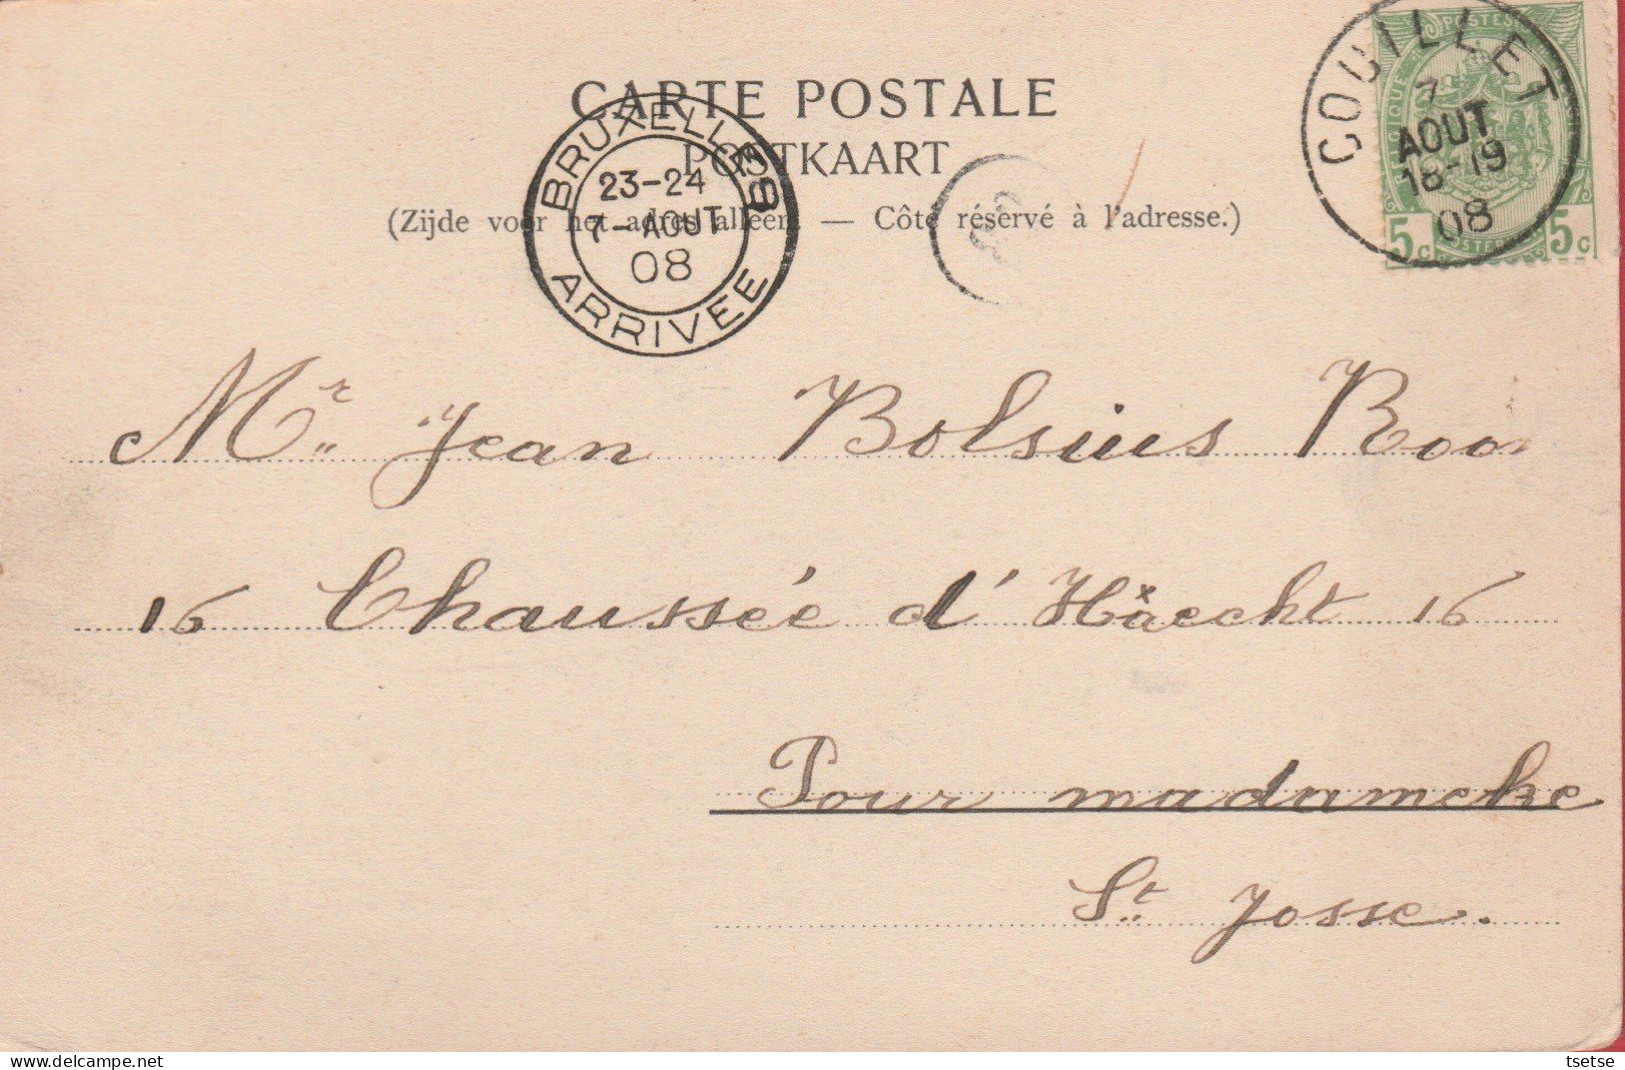 CARTE POSTALE
POSTKAART
(Zijde voor het adres alleen. — Côté réservé à l'adresse.)
BRUXELLES
23-24
7-AOUT
08
ARRIVEE
COUILLET
7
AOUT
18-19
08
POSTES
5c 5c
Mr. Jean Bolsius Roo
16 Chaussée d'Haecht 16
Pour madameke
St. Josse.
delcampe.net
tsetse